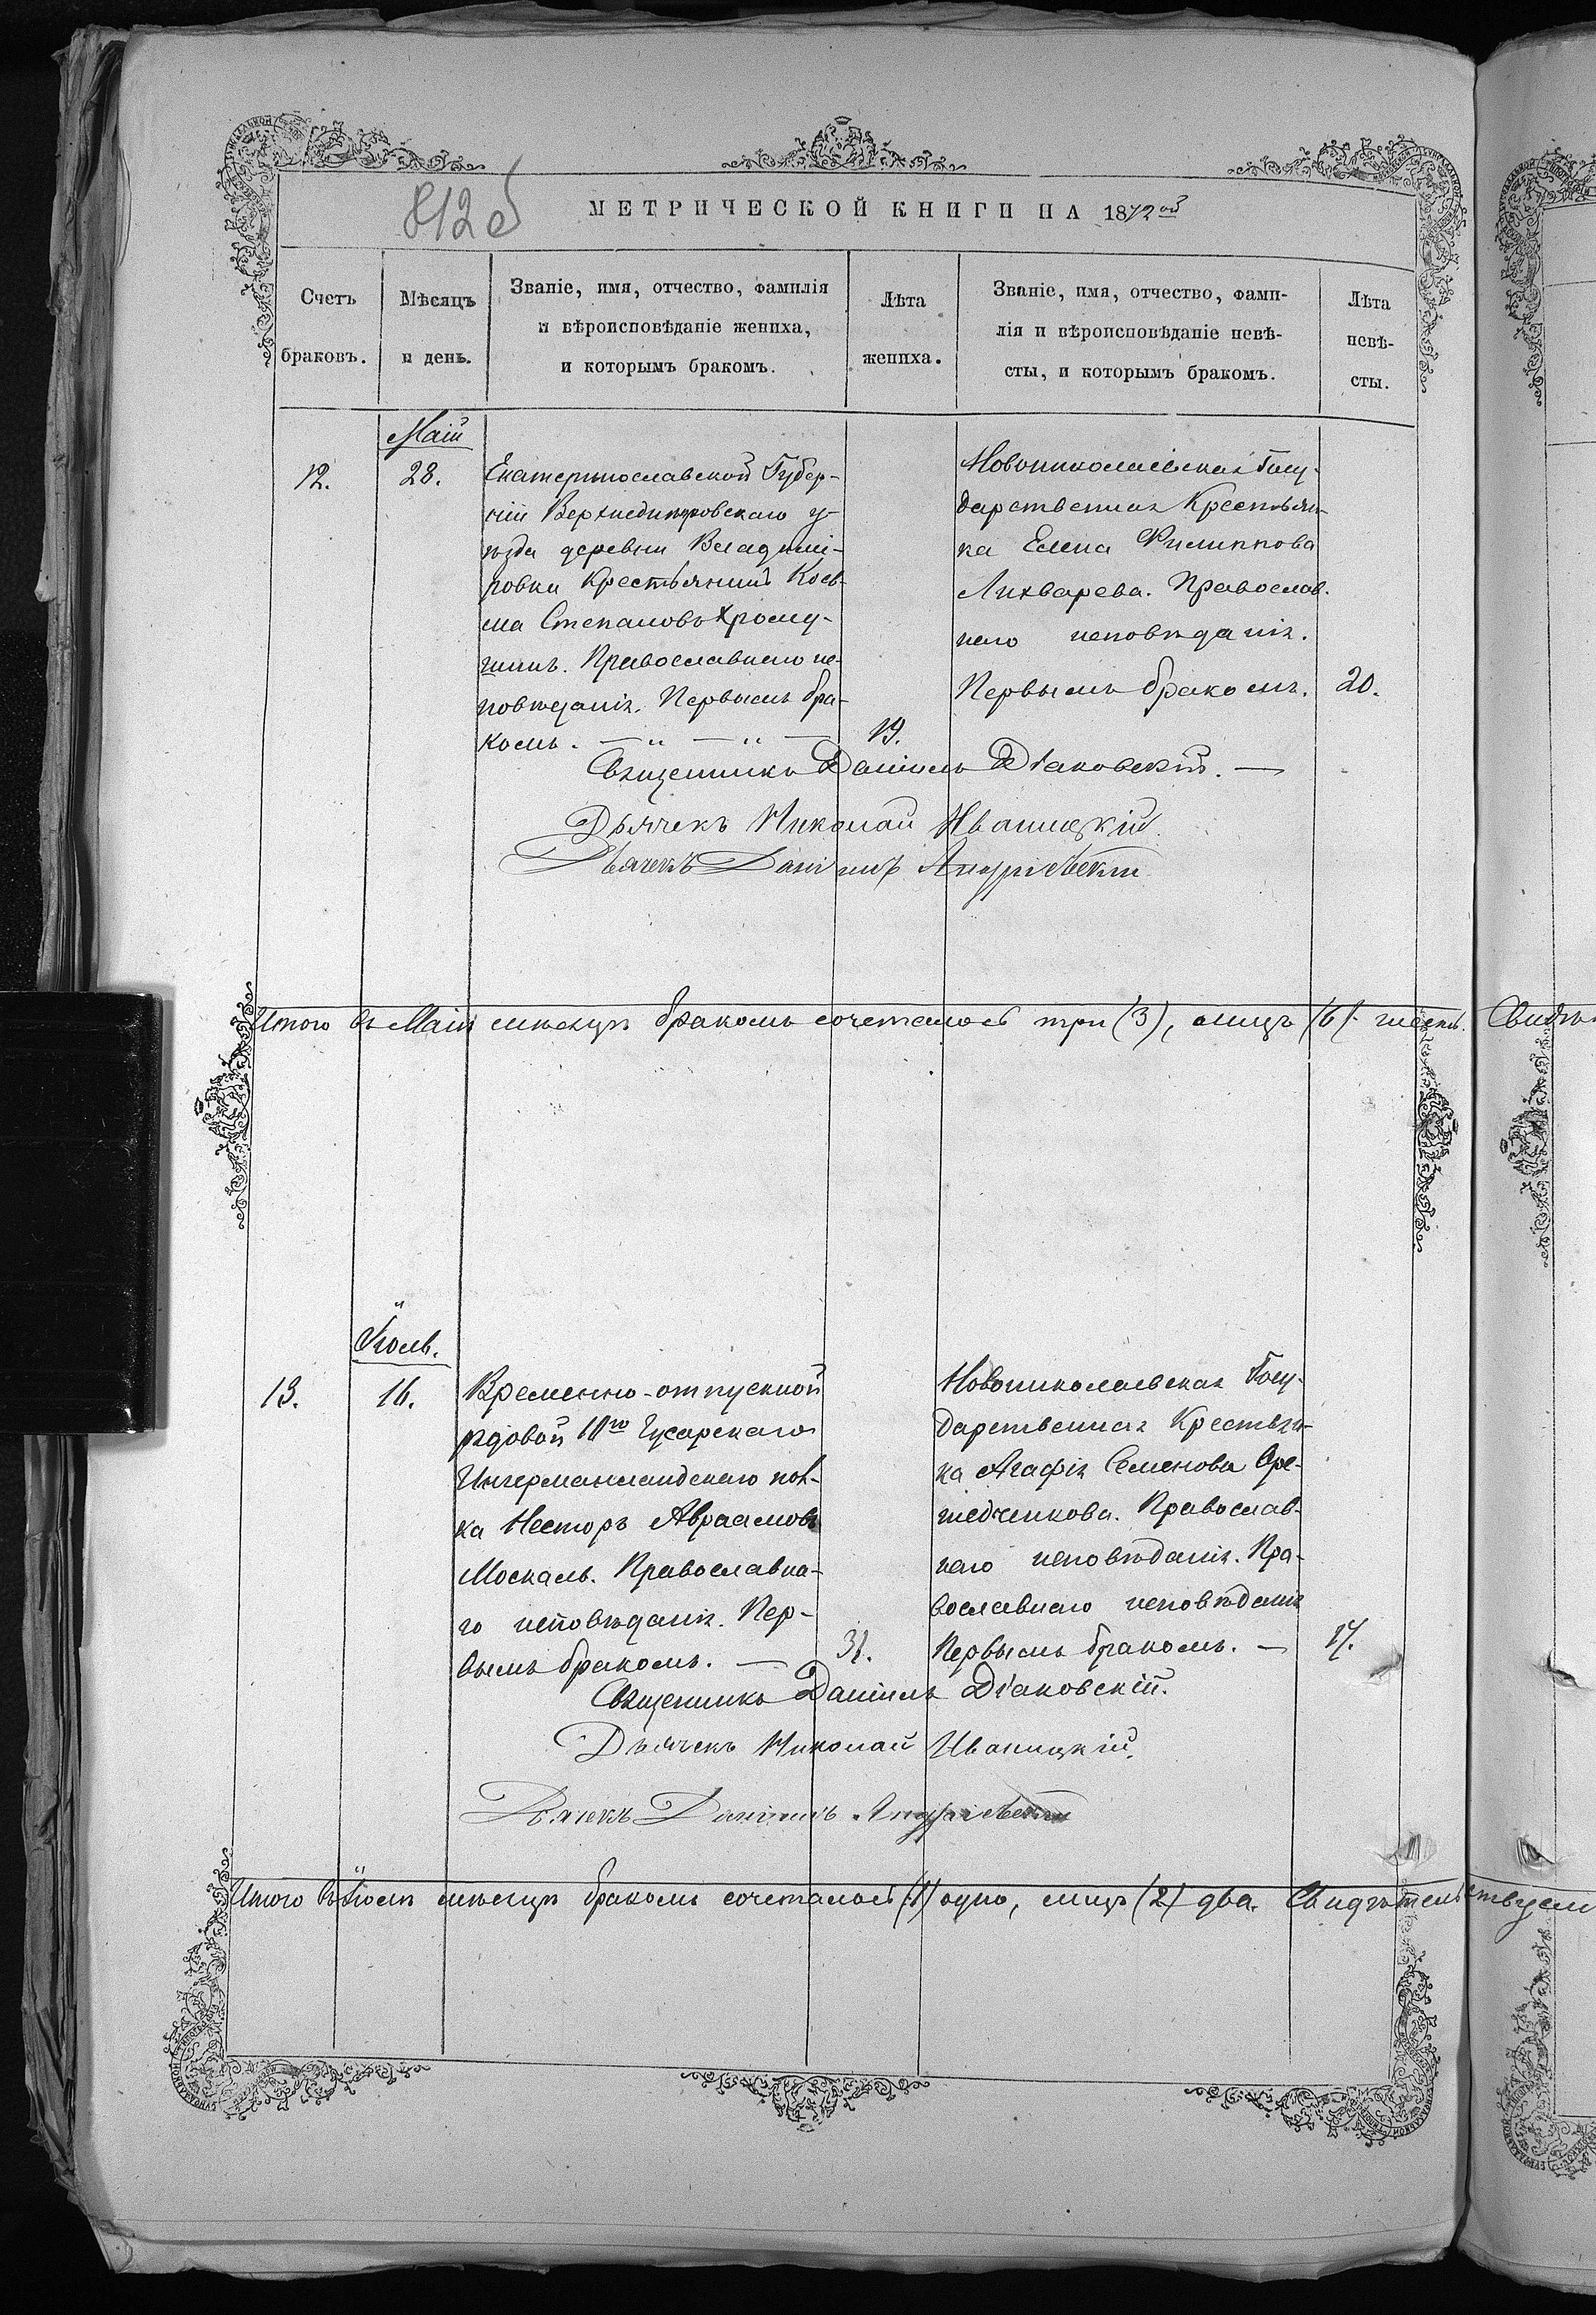 812 об
МЕТРИЧЕСКОЙ КНИГИ НА 1872 ой
Счетъ
браковъ.
Мѣсяцъ
и день.
Званіе, имя, отчество, фамилія
и вѣроисповѣданіе жениха,
и которымъ бракомъ.
Лѣта
жениха.
Званіе, имя, отчество, фами-
лія и вѣроисповѣданіе невѣ-
сты, и которымъ бракомъ.
Лѣта
невѣ-
сты.
Маій
12.
28.
Екатеринославской Губер-
ніи Верхнеднѣпровскаго у-
ѣзда деревни Владимі-
ровки Крестьянинъ Косъ-
ма Степановъ Хрому-
шинъ. Православнаго ис-
повѣданія. Первымъ бра-
комъ. — " — " —
19.
Новониколаевская Госу-
дарственная Крестьян-
ка Елена Филиппова
Лихварева. Православ-
наго исповѣданія.
Первымъ бракомъ.
20.
Священникъ Даніилъ Діаковскій. —
Дьячекъ Николай Иваницкій.
Дьячекъ Даніилъ Андріевскій
Итого въ Маіѣ мѣсяцѣ бракомъ сочеталось три (3), а лицъ (6) шесть. Свидѣ
Іюль.
13.
16.
Временно-отпускной
рядовой 10го Гусарскаго
Ингерманландскаго пол-
ка Несторъ Авраамовъ
Москаль. Православна-
го исповѣданія. Пер-
вымъ бракомъ. —
31.
Новониколаевская Госу-
дарственная Крестьян-
ка Агафія Семенова Оре-
шедченкова. Православ-
наго исповѣданія. Пра-
вославнаго исповѣданія
Первымъ бракомъ. —
17.
Священникъ Даніилъ Діаковскій.
Дьячекъ Николай Иваницкій.
Дьячекъ Даніилъ Андріевскій
Итого въ Іюлѣ мѣсяцѣ бракомъ сочеталось (1) одно, лицъ (2) два. Свидѣтельствуемъ